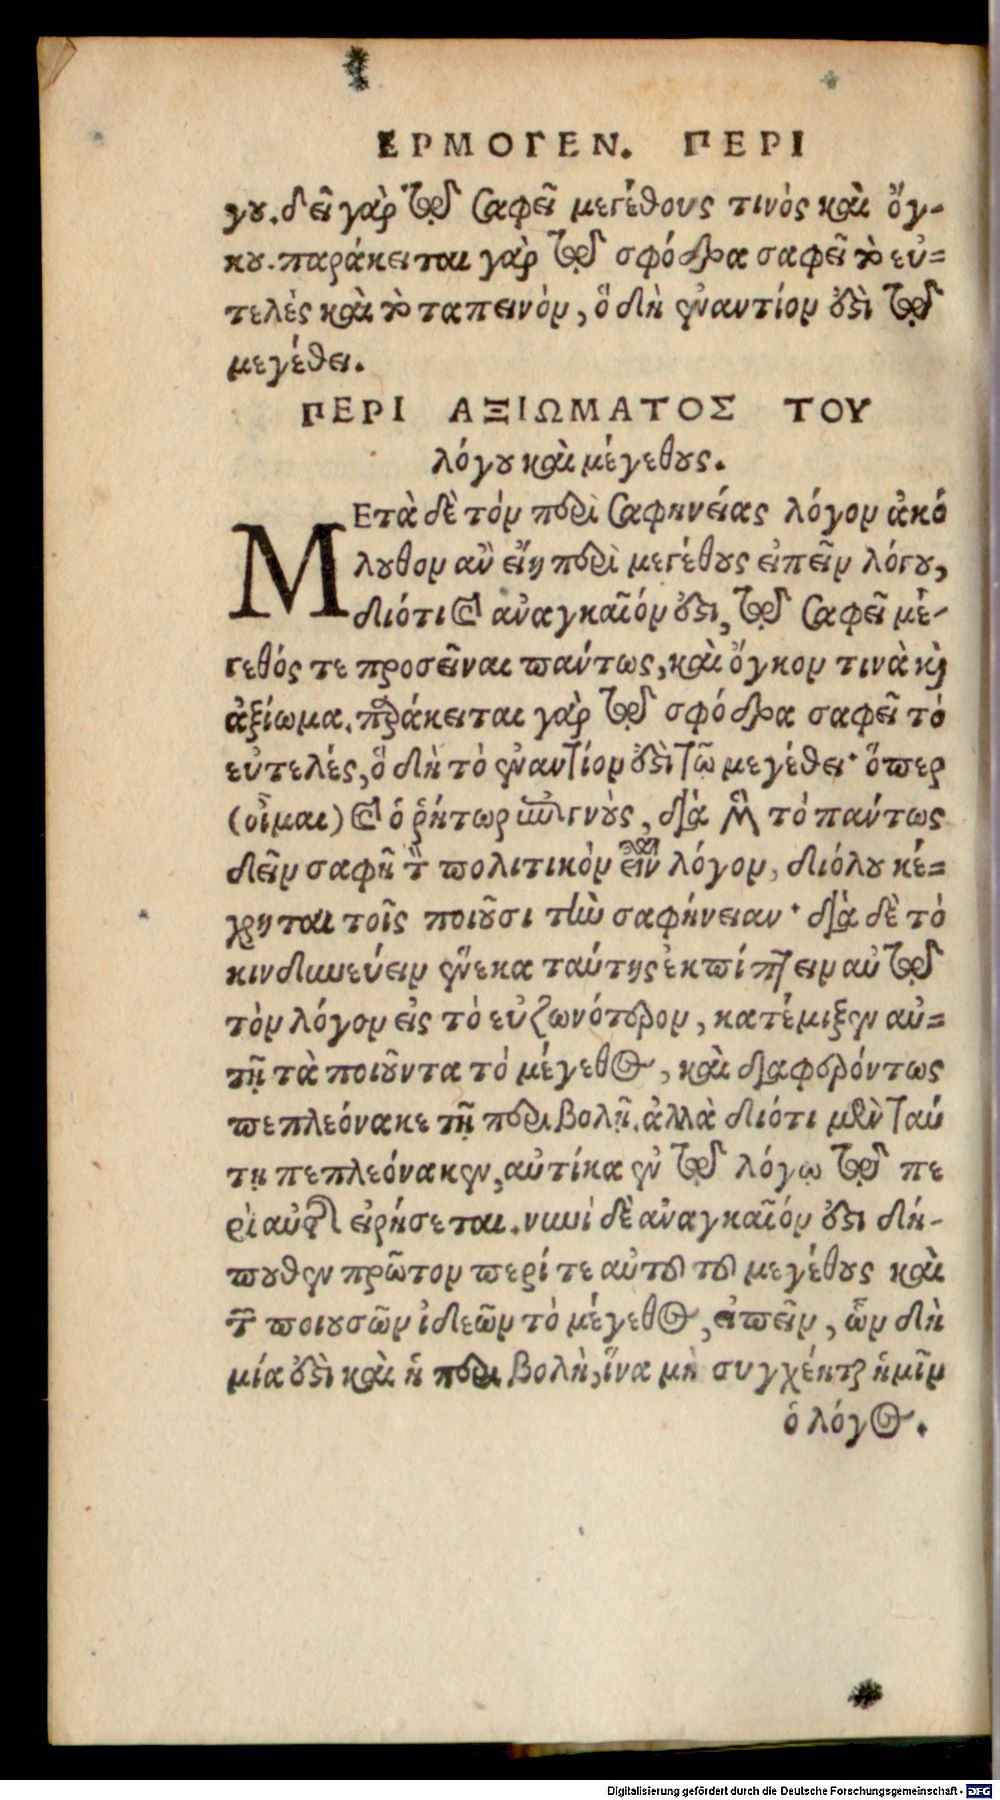 ΕΡΜΟΓΕΝ. ΠΕΡΙ
γου. δεῖ γὰρ τῷ σαφεῖ μεγέθους τινὸς καὶ ὄγ-
κου. παράκειται γὰρ τῷ σφόδρα σαφεῖ τὸ εὐ=
τελὲς καὶ τὸ ταπεινὸν, ὃ δὴ ἐναντίον ἐστὶ τῷ
μεγέθει.
ΠΕΡΙ ΑΞΙΩΜΑΤΟΣ ΤΟΥ
λόγου καὶ μέγεθους.
ΜΕτὰ δὲ τόν περὶ σαφηνείας λόγον ἀκό
λουθον ἂν εἴη περὶ μεγέθους εἰπεῖν λόγου,
διότι καὶ ἀναγκαῖόν ἐστι, τῷ σαφεῖ μέ-
γεθός τε προσεῖναι πάντως, καὶ ὄγκον τινὰ καὶ
ἀξίωμα. παράκειται γὰρ τῷ σφόδρα σαφεῖ τό
εὐτελές, ὃ δὴ τὸ ἐναντίον ἐστὶ τῷ μεγέθει· ὅπερ
(οἶμαι) καὶ ὁ ῥήτωρ συγγνοὺς, διὰ μὲν τὸ πάντως
δεῖν σαφῆ τὸν πολιτικὸν εἶναι λόγον, διόλου κέ=
χρηται τοῖς ποιοῦσι τὴν σαφήνειαν· διὰ δὲ τὸ
κινδυνεύειν ἕνεκα ταύτης ἐκπίπτειν αὐτῷ
τὸν λόγον εἰς τὸ εὐζωνότερον, κατέμιξεν αὐ=
τῇ τὰ ποιοῦντα τό μέγεθος, καὶ διαφερόντως
πεπλεόνακε τῇ περιβολῇ. ἀλλὰ διότι μὲν ταύ
τῃ πεπλεόνακεν, αὐτίκα ἐν τῷ λόγῳ τῷ πε
ρὶ αὐτῆς εἰρήσεται. νυνὶ δὲ ἀναγκαῖόν ἐστι δή-
πουθεν πρῶτον περί τε αὐτοῦ τοῦ μεγέθους καὶ
τῶν ποιουσῶν ἰδεῶν τὸ μέγεθος, εἰπεῖν, ὧν δὴ
μία ἐστὶ καὶ ἡ περιβολὴ, ἵνα μὴ συγχέηται ἡμῖν
ὁ λόγος.
Digitalisierung gefördert durch die Deutsche Forschungsgemeinschaft - DFG